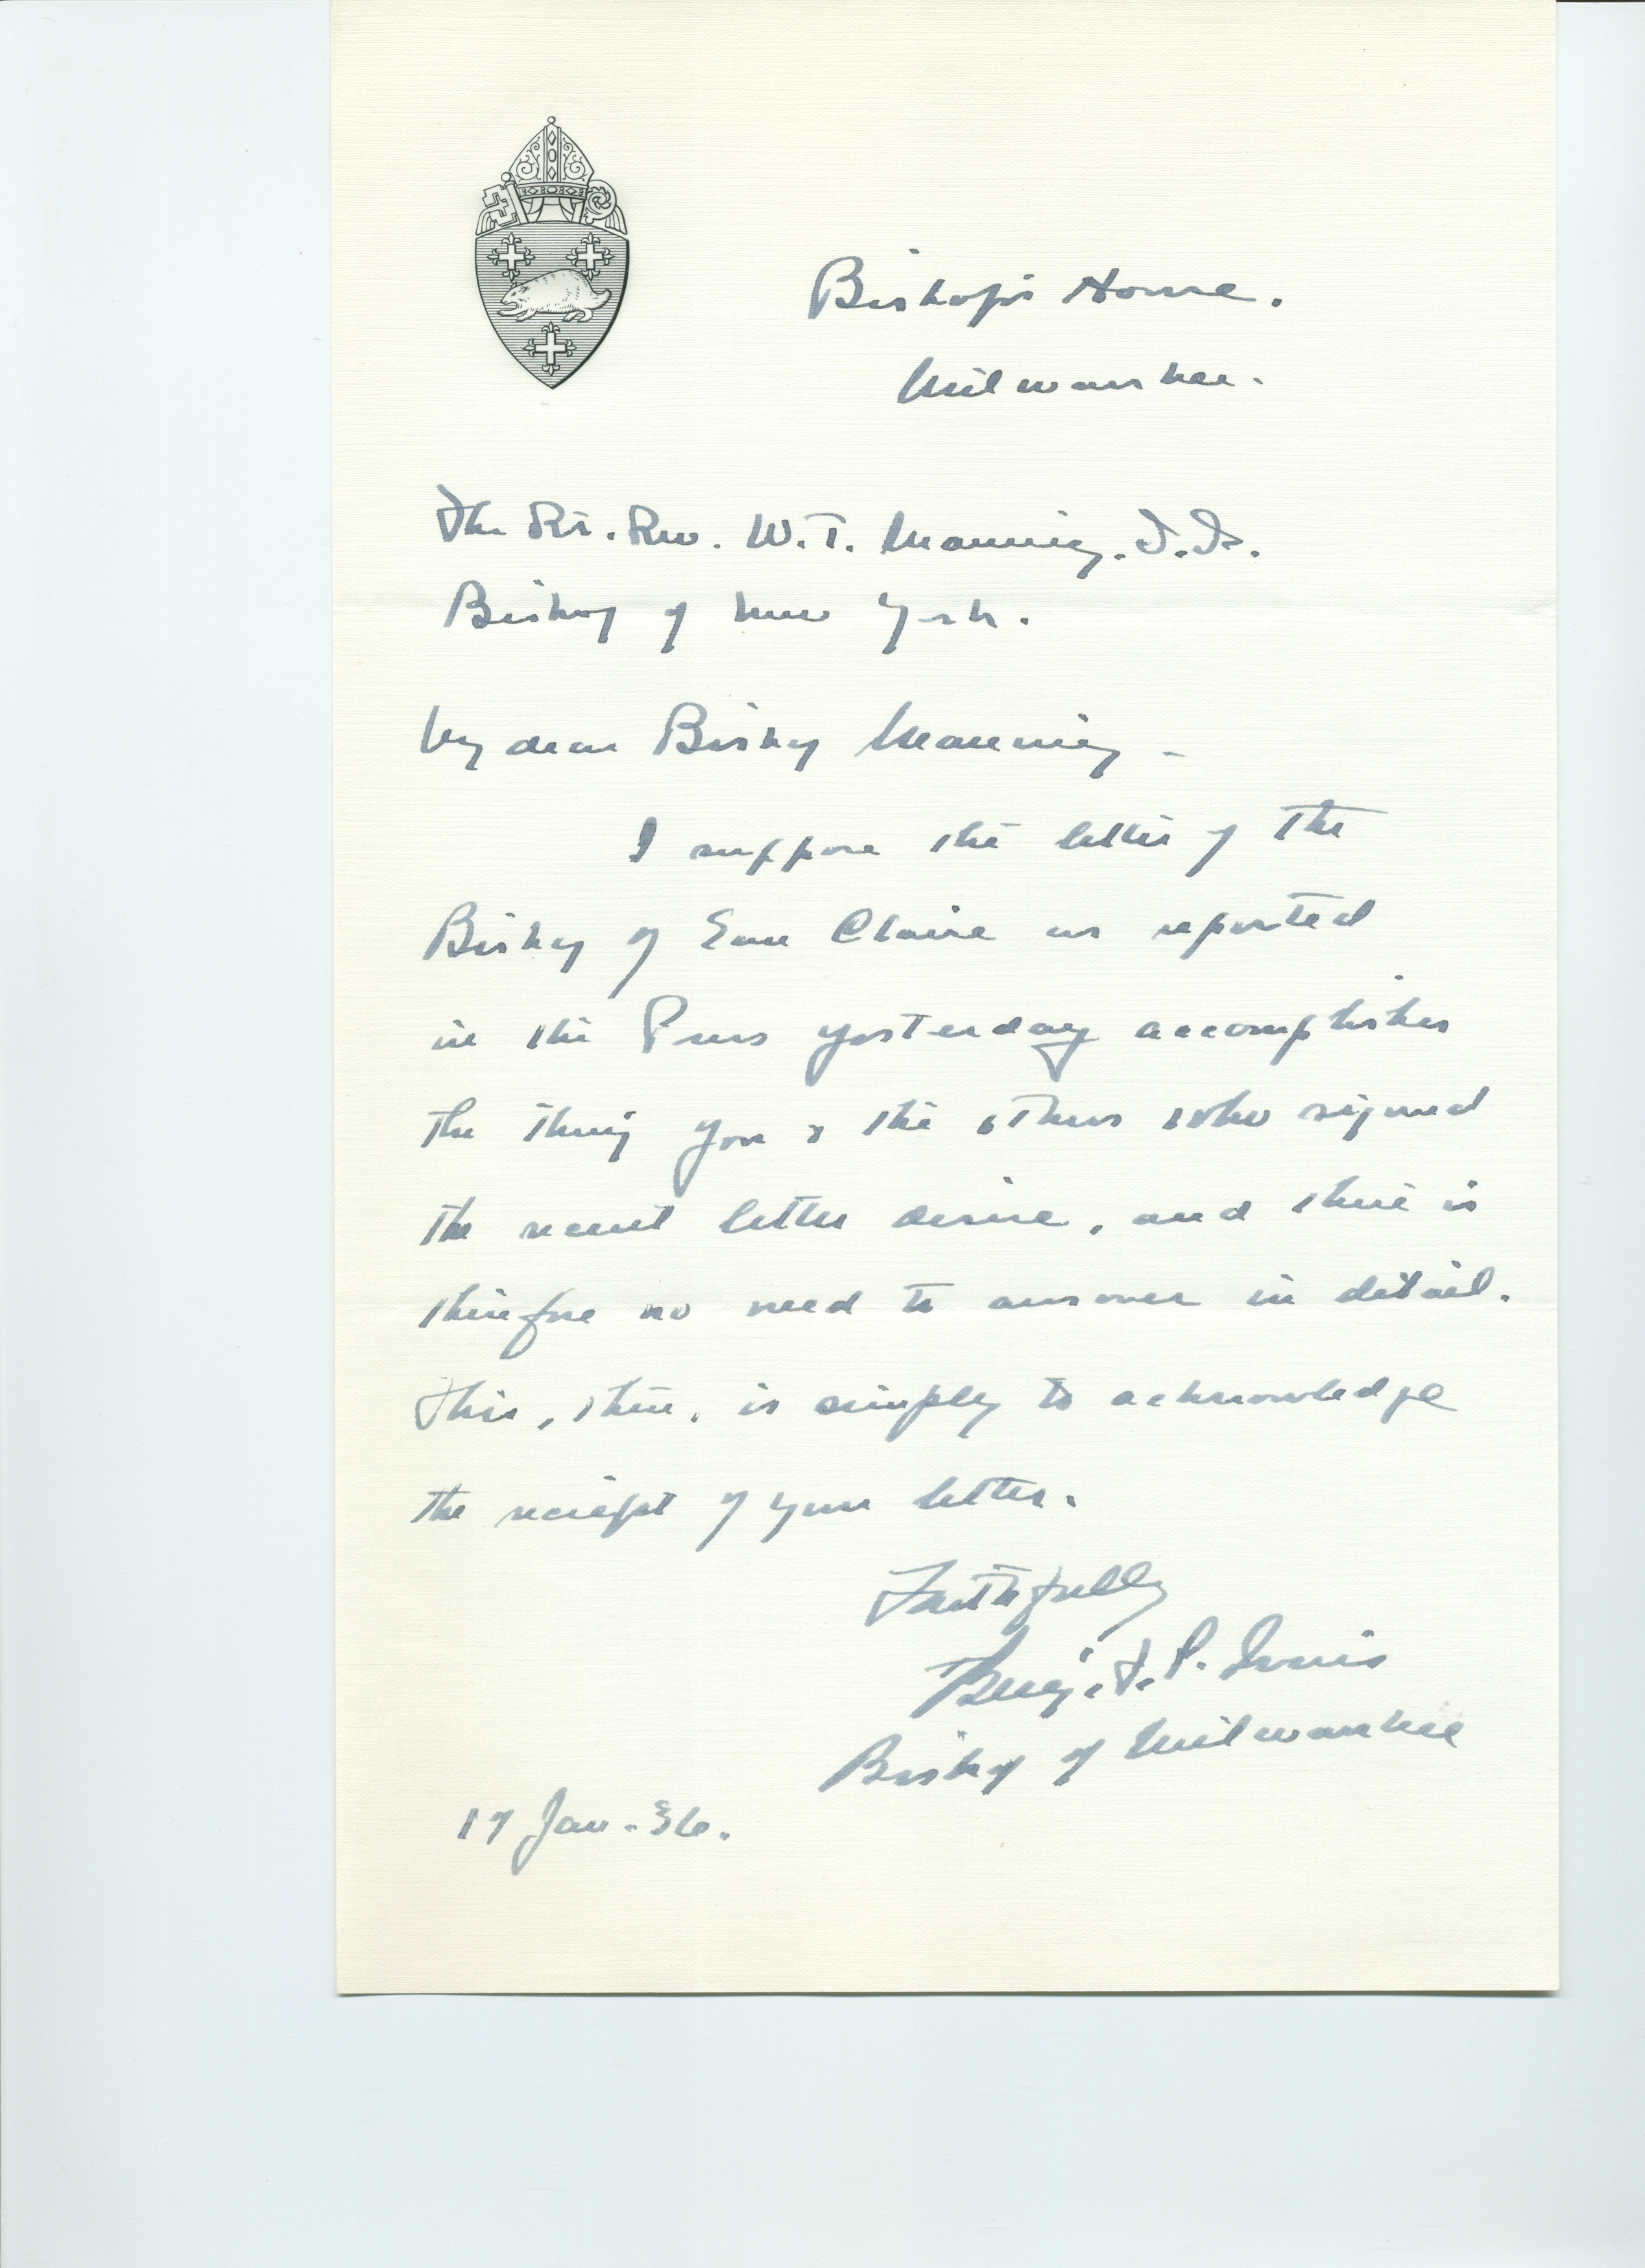 Bishop's House.
Milwaukee.
The Rt. Rev. W. T. Manning. D.D.
Bishop of New York.
My dear Bishop Manning -
I suppose the letter of the
Bishop of Eau Claire as reported
in the Press yesterday accomplishes
the thing you & the others who signed
the recent letter desire, and there is
therefore no need to answer in detail.
This, then, is simply to acknowledge
the receipt of your letter.
Faithfully
Benj. F. P. Ivins
Bishop of Milwaukee
17 Jan. 36.